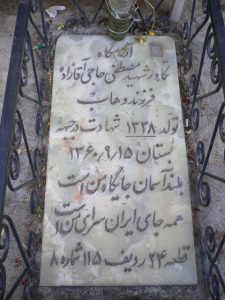 آرامگاه
کادر شهید مصطفی حاجی آقازاده
فرزند وهاب
تولد ۱۳۳۸ شهادت در جبهه
بستان ۱۳۶۰/۹/۱۵
بلند آسمان جایگاه من است
همه جای ایران سرای من است
قطعه ۲۴ ردیف ۱۱۵ شماره ۸